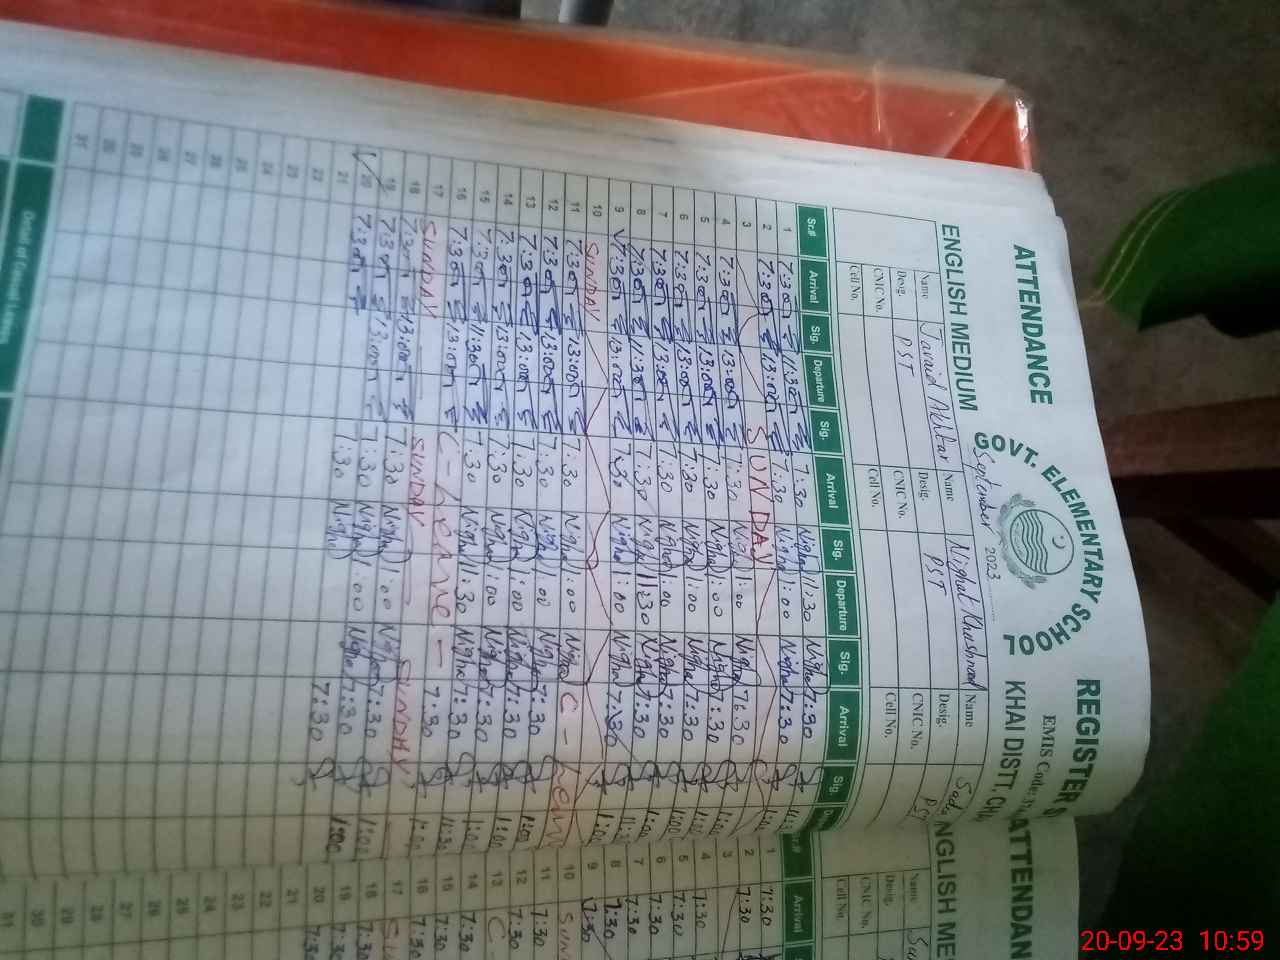 ATTENDANCE REGISTER
GOVT. ELEMENTARY SCHOOL
EMIS Code:
ENGLISH MEDIUM
KHAI DISTT, CH
September 2023
Name Javaid Akhtar Name Nighat Khushnod Name
Desig. PST Desig. PST Desig. PST
CNIC No. CNIC No. CNIC No.
Cell No. Cell No. Cell No.
Sr.# Arrival Sig. Departure Sig. Arrival Sig. Departure Sig. Arrival Sig.
1 7:30 11:30 7:30 Nighat 11:30 Nighat 7:30
2 7:30 13:00 7:30 Nighat 1:00 Nighat 7:30 1:00
3 SUNDAY
4 7:30 13:00 7:30 Nighat 1:00 Nighat 7:30 1:00
5 7:30 13:00 7:30 Nighat 1:00 Nighat 7:30 1:00
6 7:30 13:00 7:30 Nighat 1:00 Nighat 7:30 1:00
7 7:30 13:00 7:30 Nighat 1:00 Nighat 7:30 1:00
8 7:30 11:30 7:30 Nighat 11:30 Nighat 7:30
9 7:30 13:00 7:30 Nighat 1:00 Nighat 7:30 1:00
10 SUNDAY
11 7:30 13:00 7:30 Nighat 1:00 Nighat C-
12 7:30 13:00 7:30 Nighat 1:00 Nighat 7:30 1:00
13 7:30 13:00 7:30 Nighat 1:00 Nighat 7:30 1:00
14 7:30 13:00 7:30 Nighat 1:00 Nighat 7:30 1:00
15 7:30 11:30 7:30 Nighat 11:30 Nighat 7:30 11:30
16 7:30 13:00 C- 7:30 1:00
17 SUNDAY SUNDAY SUNDAY
18 7:30 13:00 7:30 Nighat 1:00 Nighat 7:30 1:00
19 7:30 13:00 7:30 Nighat 1:00 Nighat 7:30 1:00
20 7:30 7:30 Nighat 7:30
21
22
23
24
25
26
27
28
29
30
31
Detail of Casual Leaves
ATTENDAN
NGLISH ME
Name
Desig.
CNIC No.
Cell No.
Sr.# Arrival
1 7:30
2 7:30
3
4 7:30
5 7:30
6 7:30
7 7:30
8 7:30
9 7:30
10 SUN
11 7:30
12 7:30
13 C
14 7:30
15 7:30
16 7:30
17 SU
18 7:30
19 7:30
20 7:30
21
22
23
24
25
26
27
28
29
30
31
20-09-23 10:59